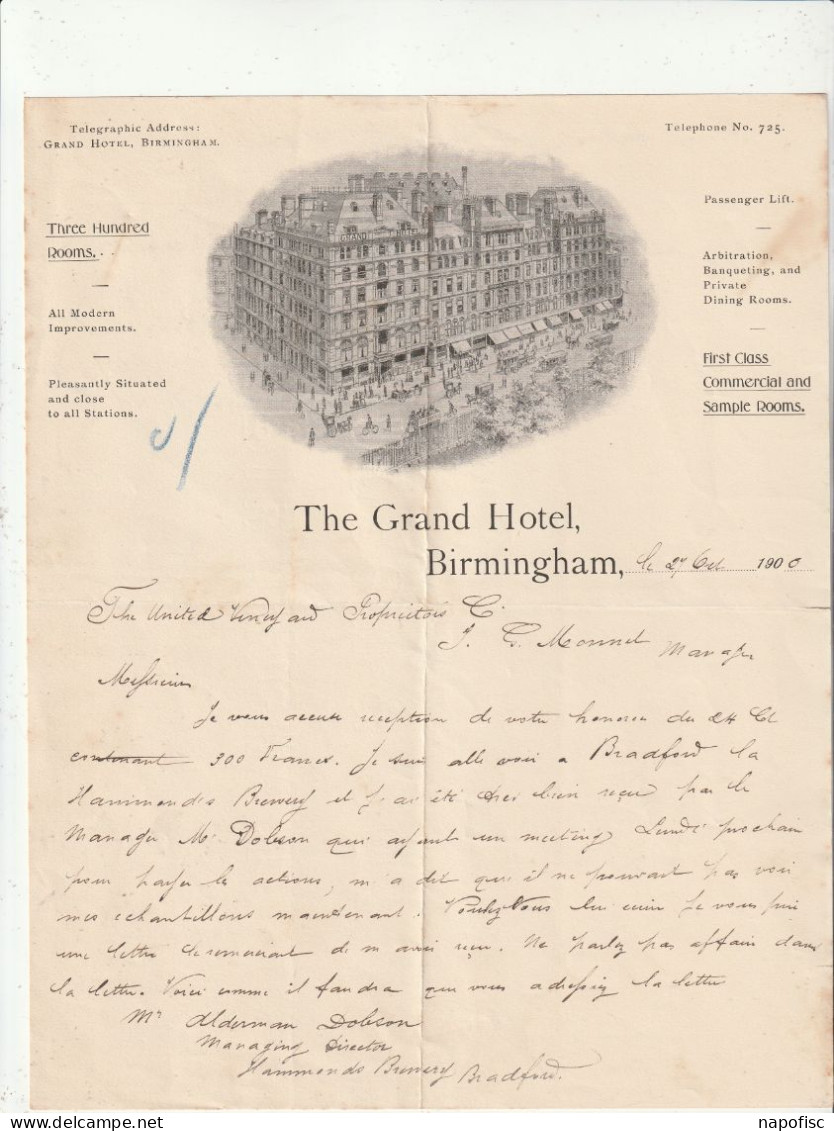 Telegraphic Address:
GRAND HOTEL, BIRMINGHAM.
Telephone No. 725.
Three Hundred
Rooms.
All Modern
Improvements.
Pleasantly Situated
and close
to all Stations.
Passenger Lift.
Arbitration,
Banqueting, and
Private
Dining Rooms.
First Class
Commercial and
Sample Rooms.
GRAND HOTEL
The Grand Hotel,
Birmingham, le 27 Oct 1900
The United Vineyard Proprietors C.
J. G. Monnet Manager
Messieurs
Je vous accuse reception de votre honoree du 24 Ct
contenant 300 Francs. Je suis allé voir a Bradford la
Hammonds Brewery et j'ai été très bien reçu par le
Manager Mr Dobson qui ayant un meeting Lundi prochain
pour payer les actions, m'a dit qu'il ne pouvait pas voir
mes echantillons maintenant. Voulez Vous lui je vous prie
une lettre le remerciant de m'avoir reçu. Ne parlez pas affaire dans
la lettre. Voici comme il faudra que vous adressiez la lettre
Mr Alderman Dobson
Managing Director
Hammonds Brewery Bradford.
napofisc